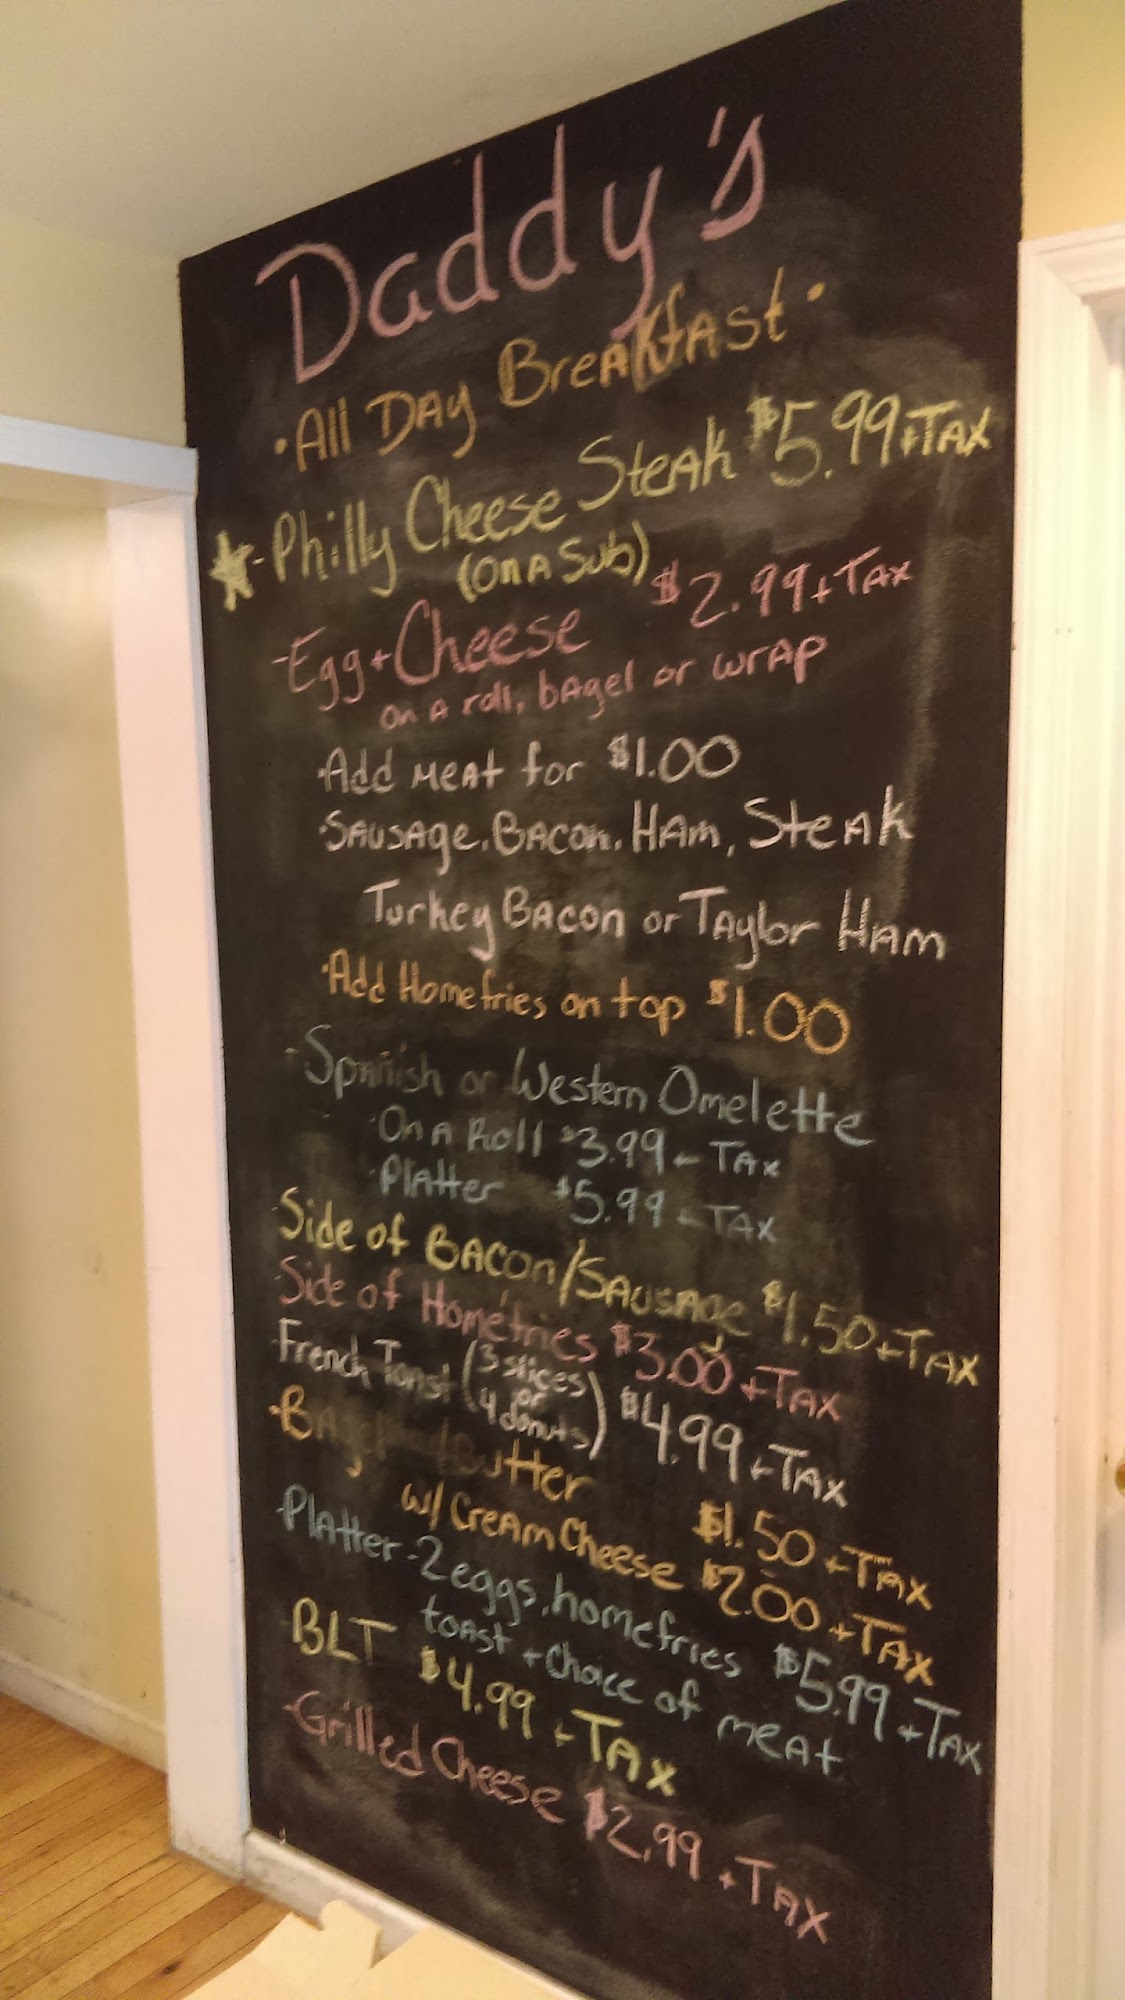 Daddy's
·All Day Breakfast·
-Philly Cheese Steak $5.99+Tax
(On A Sub)
-Egg+Cheese $2.99+Tax
on a roll, bagel or wrap
·Add meat for $1.00
·Sausage, Bacon, Ham, Steak
Turkey Bacon or Taylor Ham
·Add Homefries on top $1.00
-Spanish or Western Omelette
·On A Roll $3.99 - Tax
·Platter $5.99 - Tax
·Side of Bacon/Sausage $1.50+Tax
·Side of Homefries $3.00+Tax
French Toast (3 slices or 4 donuts) $4.99+Tax
·Bagel w/Butter $1.50+Tax
w/ Cream Cheese $2.00+Tax
-Platter-2 eggs, homefries $5.99+Tax
toast + Choice of meat
BLT $4.99+Tax
-Grilled Cheese $2.99+Tax